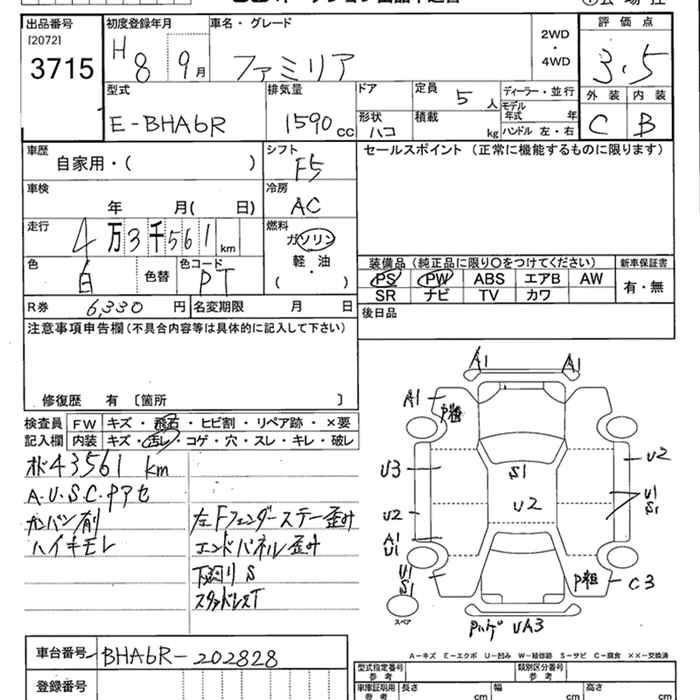 出品番号 初度登録年月 車名・グレード 2WD・4WD 評価点
[2072]
3715 H8 9月 ファミリア 3.5
外装 内装
C B
型式 排気量 ドア 定員 5人 ディーラー・並行
E-BHA6R 1590cc 形状 ハコ 積載 kg モデル年式 年
ハンドル 左・右
車歴 シフト セールスポイント (正常に機能するものに限ります)
自家用・( ) F5
車検 冷房
年 月( 日) AC
走行 燃料
4万3千561km ガソリン
軽・油
( )
色 色替 色コード
白 PT
装備品 (純正品に限り○をつけてください) 新車保証書
PS PW ABS エアB AW 有・無
SR ナビ TV カワ
R券 6,330円 名変期限 月 日 後日品
注意事項申告欄 (不具合内容等は具体的に記入して下さい)
修復歴 有 〔箇所 〕
検査員記入欄 FW キズ・飛石・ヒビ割・リペア跡・×要
内装 キズ・汚レ・コゲ・穴・スレ・キレ・破レ
43561 km
A.U.S.C.Pアセ
カンバン 左Fフェンダーステー歪み
ハイキモレ エンドパネル歪み
下廻り S
スタッドレスT
A1 A1
A1
U3 S1 U2
U2 U2 U1
S1
A1
U1
U1
S1 C3
スペア
UA3
A-キズ E-エクボ U-凹み W-補修跡 S-サビ C-腐食 ××-交換済
車台番号 BHA6R-202828
登録番号
型式指定番号 参考 類別区分番号 参考
車庫証明用 参考 長さ cm 幅 cm 高さ cm